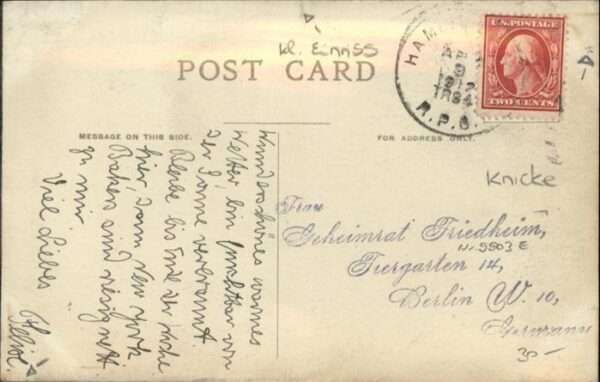 Kl. Einriss
POST CARD
MESSAGE ON THIS SIDE.
FOR ADDRESS ONLY.
U.S. POSTAGE
TWO CENTS
HAM
AP
9
1912
TR84
R.P.O.
Knicke
Wunderschönes warmes
Wetter, bin furchtbar von
der Sonne verbrannt.
Bleibe bis Ende der Woche
hier, dann New York
Bakers sind riesig nett
zu mir.
Viel Liebes
Felix.
Frau
Geheimrat Friedheim,
Tiergarten 14,
Berlin W. 10,
Germany
30-